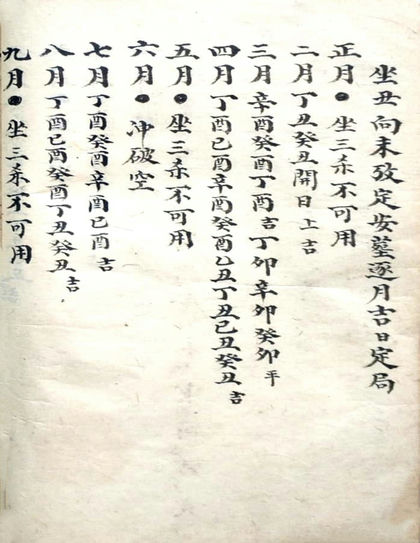 坐丑向未攷定安墓逐月吉日定局
正月●坐三杀不可用
二月丁丑癸丑開日上吉
三月辛酉癸酉丁酉吉丁卯辛卯癸卯平
四月丁酉己酉辛酉癸酉乙丑丁丑己丑癸丑吉
五月●坐三杀不可用
六月●冲破空
七月丁酉癸酉辛酉己酉吉
八月丁酉己酉癸酉丁丑癸丑吉
九月●坐三杀不可用